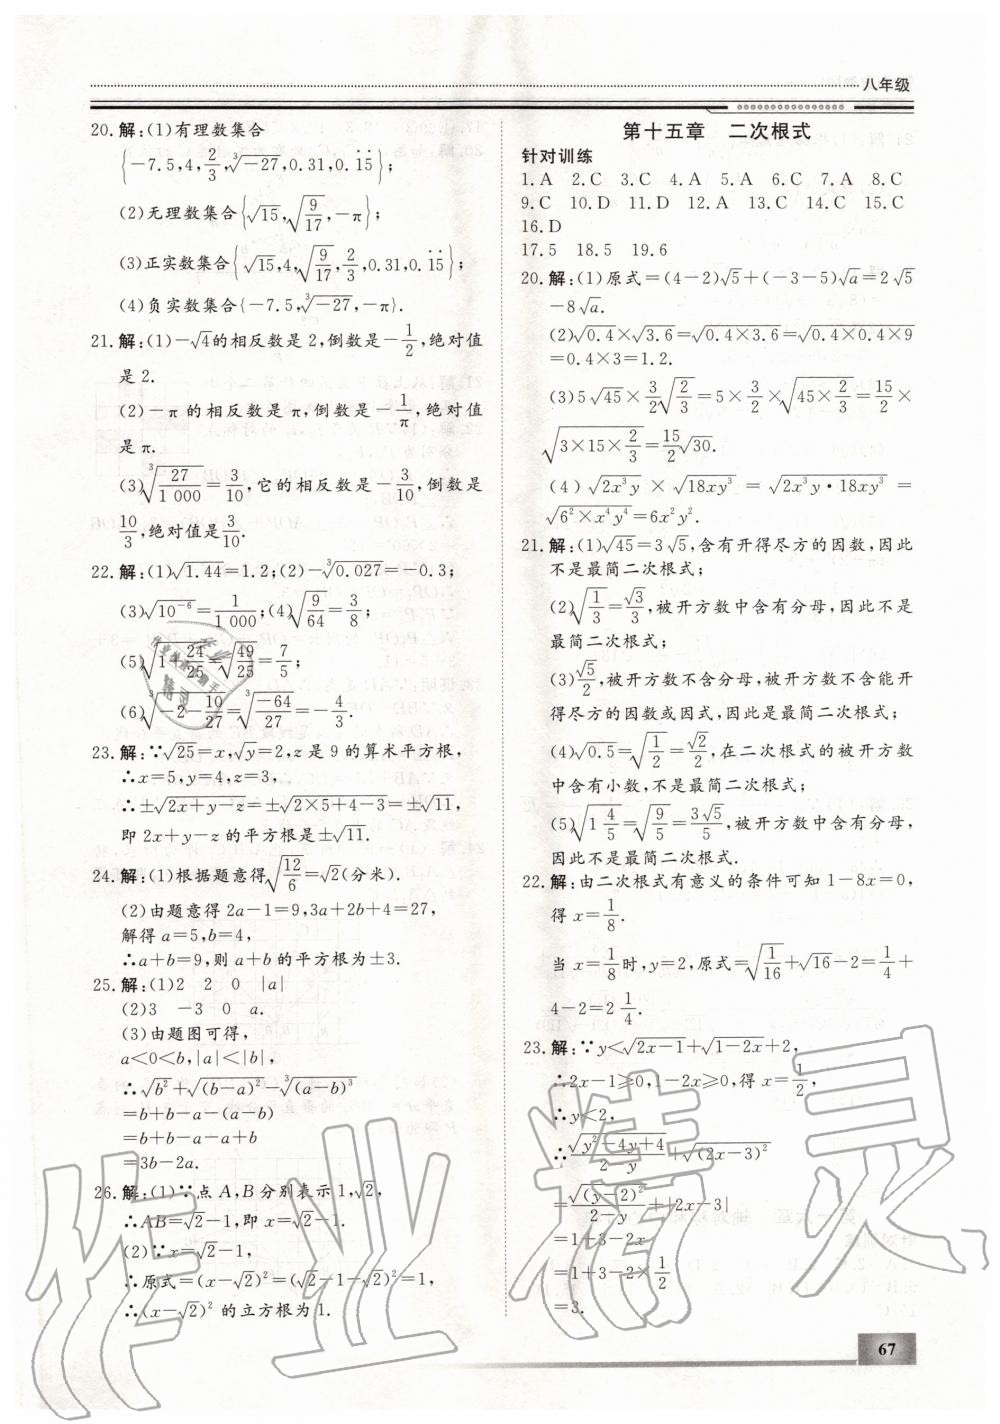 八年级
20.解:(1)有理数集合
{-7.5,4,2/3,∛-27,0.31,0.1̇5̇};
(2)无理数集合{√15,√(9/17),-π};
(3)正实数集合{√15,4,√(9/17),2/3,0.31,0.1̇5̇};
(4)负实数集合{-7.5,∛-27,-π}.
21.解:(1)-√4的相反数是2,倒数是-1/2,绝对值
是2.
(2)-π的相反数是π,倒数是-1/π,绝对值
是π.
(3)∛(27/1 000)=3/10,它的相反数是-3/10,倒数是
10/3,绝对值是3/10.
22.解:(1)√1.44=1.2;(2)-∛0.027=-0.3;
(3)√10⁻⁶=1/1 000;(4)√(9/64)=3/8;
(5)√(1+24/25)=√(49/25)=7/5;
(6)∛(-2-10/27)=∛(-64/27)=-4/3.
23.解:∵√25=x,√y=2,z是9的算术平方根,
∴x=5,y=4,z=3,
∴±√(2x+y-z)=±√(2×5+4-3)=±√11,
即2x+y-z的平方根是±√11.
24.解:(1)根据题意得√(12/6)=√2(分米).
(2)由题意得2a-1=9,3a+2b+4=27,
解得a=5,b=4,
∴a+b=9,则a+b的平方根为±3.
25.解:(1)2 2 0 |a|
(2)3 -3 0 a.
(3)由题图可得,
a<0<b,|a|<|b|,
∴√b²+√(b-a)²-∛(a-b)³
=b+b-a-(a-b)
=b+b-a-a+b
=3b-2a.
26.解:(1)∵点A,B分别表示1,√2,
∴AB=√2-1,即x=√2-1.
(2)∵x=√2-1,
∴原式=(x-√2)²=(√2-1-√2)²=1,
∴(x-√2)²的立方根为1.
第十五章 二次根式
针对训练
1.A 2.C 3.C 4.A 5.A 6.C 7.A 8.C
9.C 10.D 11.D 12.A 13.C 14.C 15.C
16.D
17.5 18.5 19.6
20.解:(1)原式=(4-2)√5+(-3-5)√a=2√5
-8√a.
(2)√0.4×√3.6=√(0.4×3.6)=√(0.4×0.4×9)
=0.4×3=1.2.
(3)5√45×3/2√(2/3)=5×3/2×√(45×2/3)=15/2×
√(3×15×2/3)=15/2√30.
(4)√(2x³y)×√(18xy³)=√(2x³y·18xy³)=
√(6²×x⁴y⁴)=6x²y².
21.解:(1)√45=3√5,含有开得尽方的因数,因此
不是最简二次根式;
(2)√(1/3)=√3/3,被开方数中含有分母,因此不是
最简二次根式;
(3)√5/2,被开方数不含分母,被开方数不含能开
得尽方的因数或因式,因此是最简二次根式;
(4)√0.5=√(1/2)=√2/2,在二次根式的被开方数
中含有小数,不是最简二次根式;
(5)√(1 4/5)=√(9/5)=3√5/5,被开方数中含有分母,
因此不是最简二次根式.
22.解:由二次根式有意义的条件可知1-8x=0,
得x=1/8.
当x=1/8时,y=2,原式=√(1/16)+√16-2=1/4+
4-2=2 1/4.
23.解:∵y<√(2x-1)+√(1-2x)+2,
∴2x-1≥0,1-2x≥0,得x=1/2,
∴y<2,
∴√(y²-4y+4)/(2-y)+√(2x-3)²
=√(y-2)²/(2-y)+|2x-3|
=1+3-2x
=1+3-2×1/2
=3.
67
作业精灵